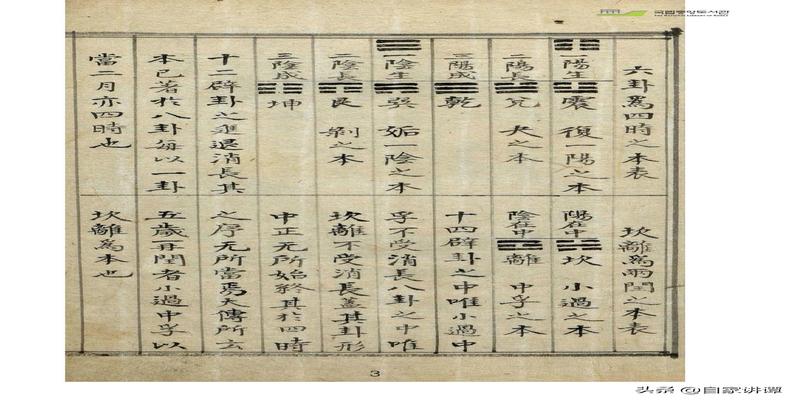 六卦爲四時之本表
一陽生 ☳ 震 復一陽之本
二陽長 ☱ 兌 夬之本
三陽成 ☰ 乾
一陰生 ☴ 巽 姤一陰之本
二陰長 ☶ 艮 剝之本
三陰成 ☷ 坤
十二辟卦之進退消長其
本已著於八卦每以一卦
當二月亦四時也
坎離爲兩閏之本表
陽在中 ☵ 坎 小過之本
陰在中 ☲ 離 中孚之本
十四辟卦之中唯小過中
孚不受消長八卦之中唯
坎離不受消長蓋其卦形
中正无所始終其於四時
之序无所當焉大傳所云
五歲再閏者小過中孚以
坎離爲本也
3
头条 @自家讲谭